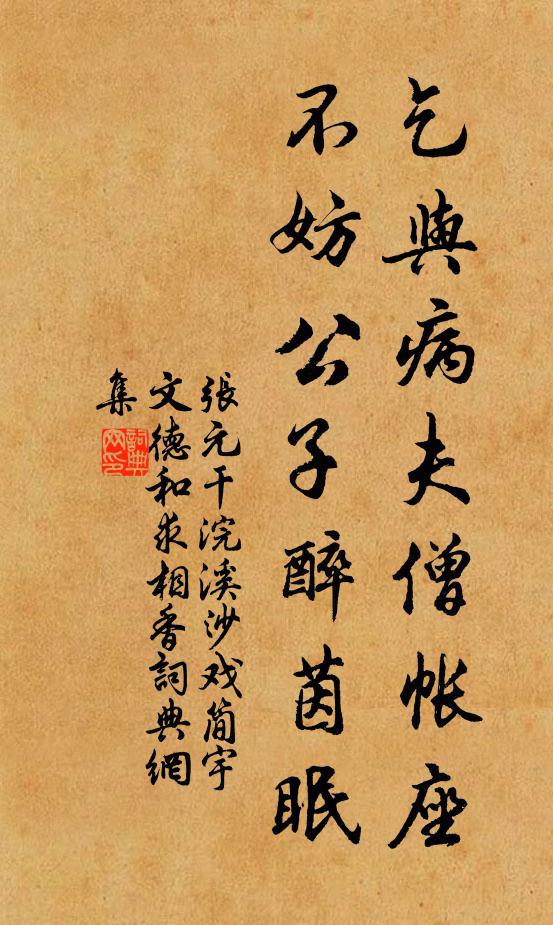 乞與病夫僧帳座
不妨公子醉茵眠
張元干浣溪沙戏简宇
文德和求相香詞典網
集
詞典
网印